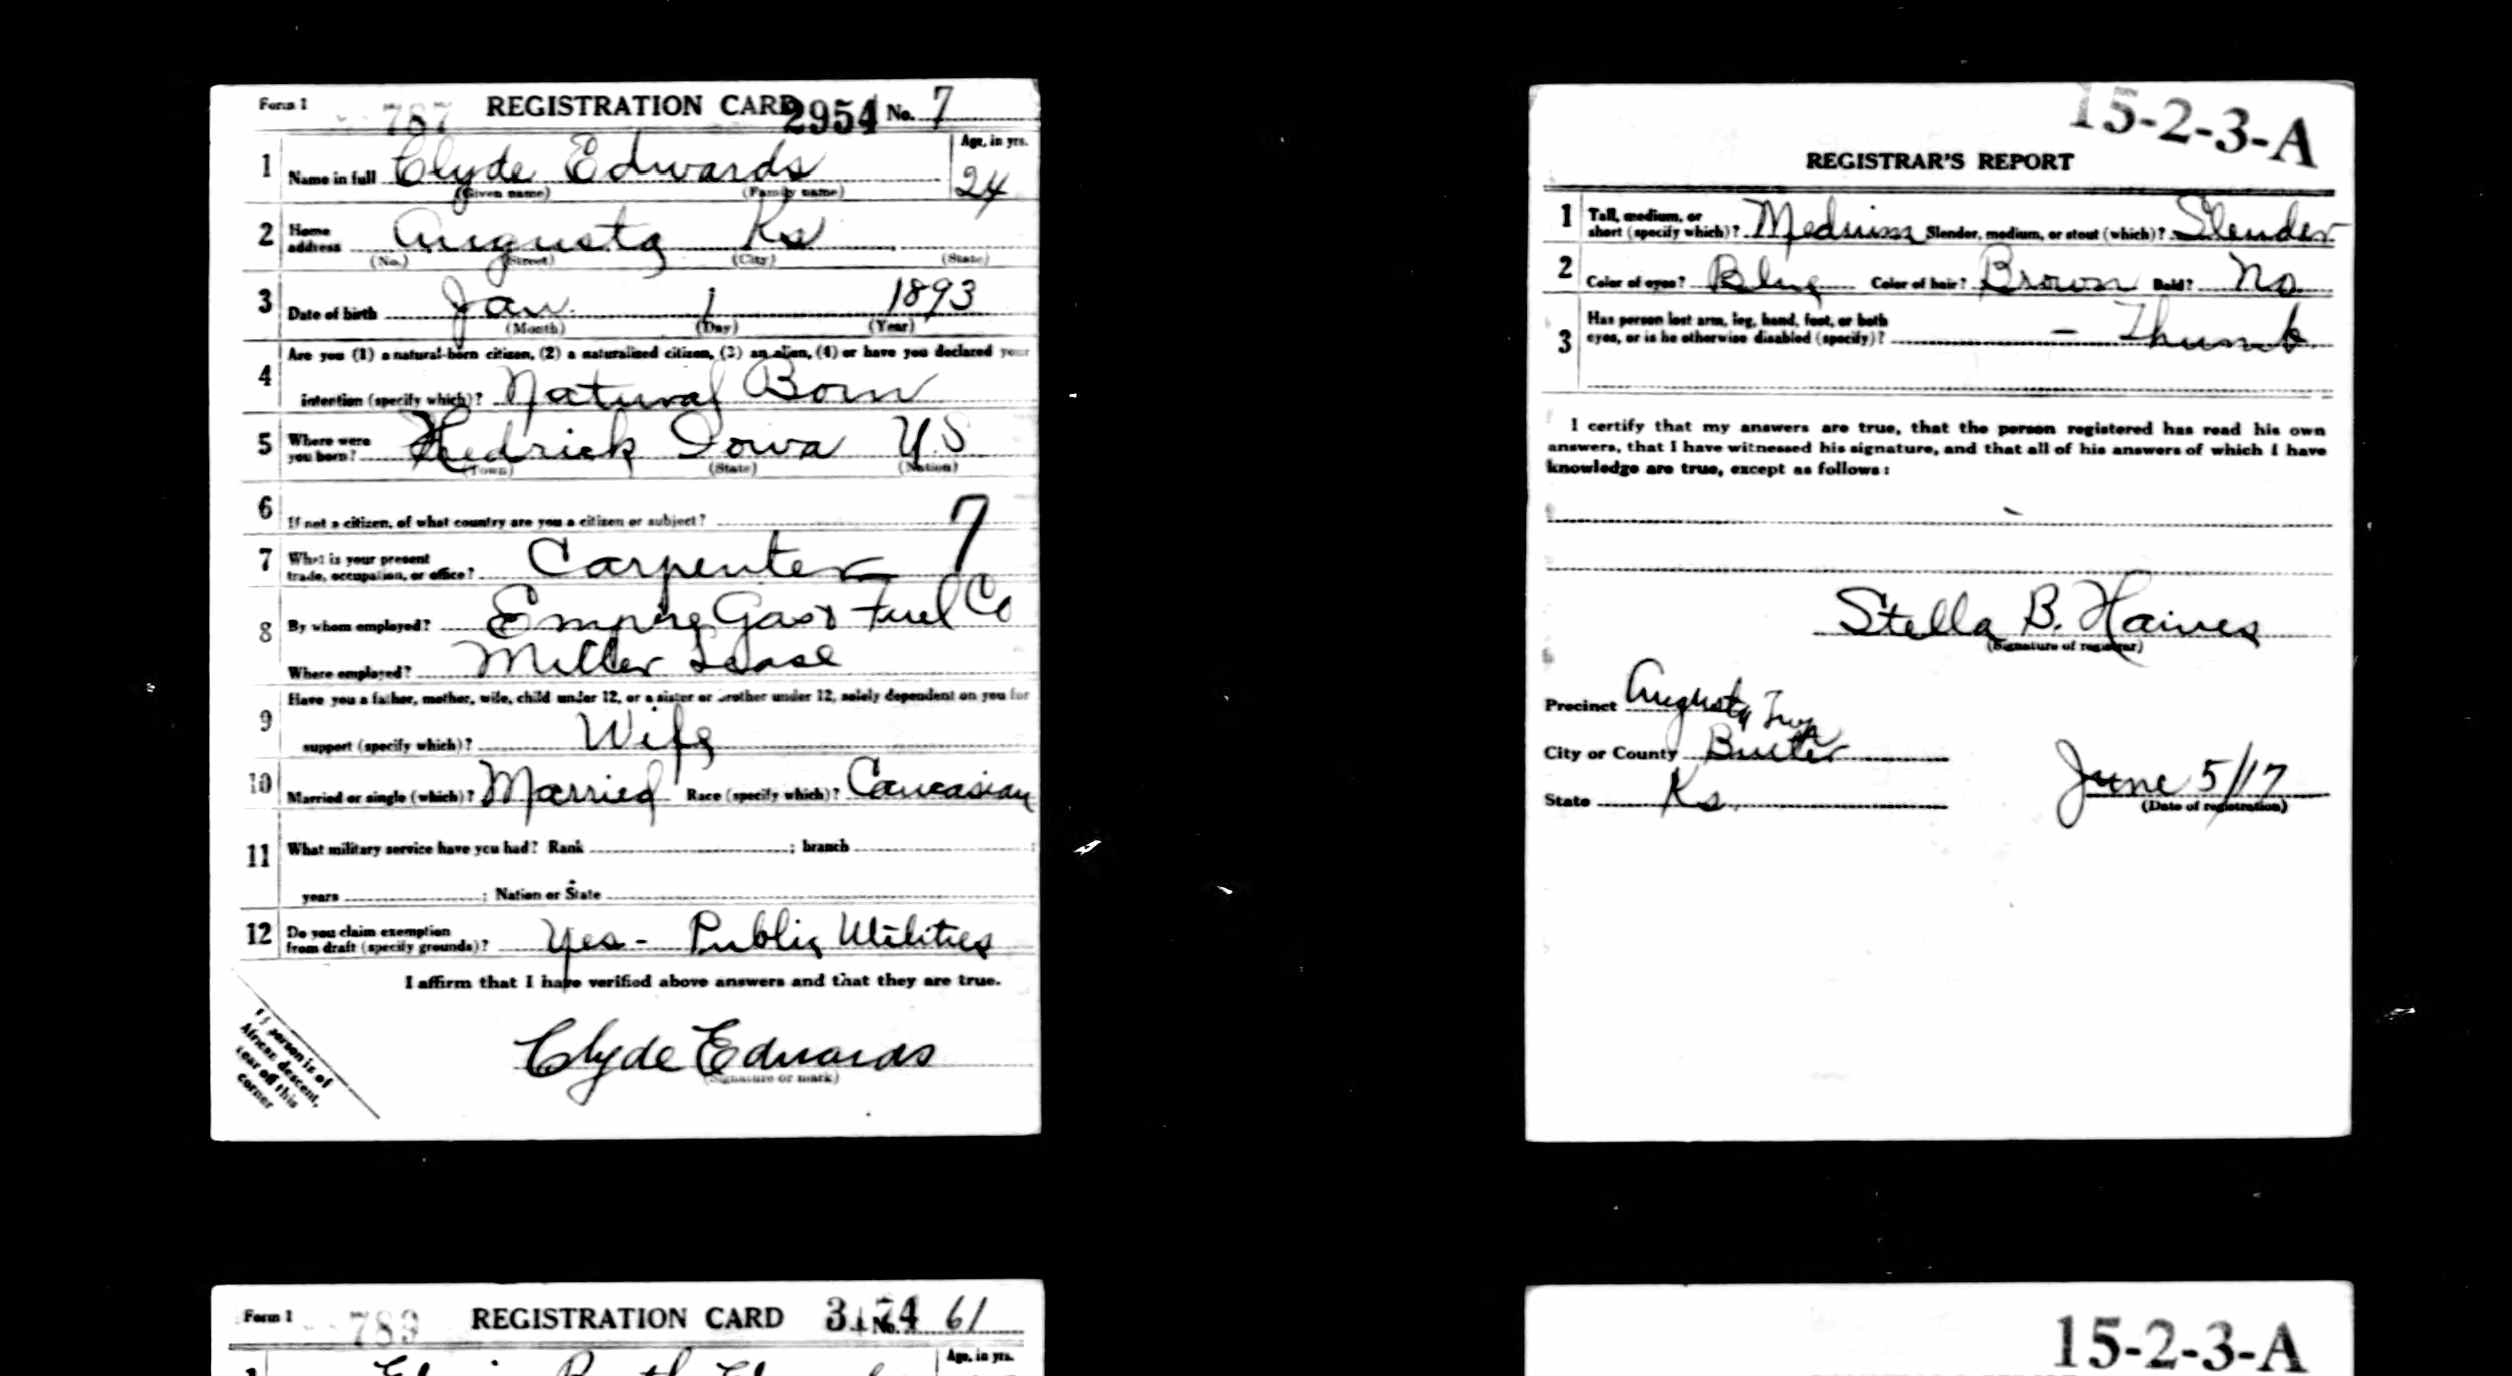 Form 1 787 REGISTRATION CARD 2954 No. 7
1 Name in full Clyde Edwards Age, in yrs. 24
(Given name) (Family name)
2 Home address Augusta Ks
(No.) (Street) (City) (State)
3 Date of birth Jan. 1 1893
(Month) (Day) (Year)
4 Are you (1) a natural-born citizen, (2) a naturalized citizen, (3) an alien, (4) or have you declared your
intention (specify which)? Natural Born
5 Where were you born? Hedrick Iowa U.S
(Town) (State) (Nation)
6 If not a citizen, of what country are you a citizen or subject?
7 What is your present trade, occupation, or office? Carpenter 7
8 By whom employed? Empire Gas & Fuel Co
Where employed? Miller Lease
9 Have you a father, mother, wife, child under 12, or a sister or brother under 12, solely dependent on you for
support (specify which)? Wife
10 Married or single (which)? Married Race (specify which)? Caucasian
11 What military service have you had? Rank ; branch ;
years ; Nation or State
12 Do you claim exemption from draft (specify grounds)? Yes - Public Utilities
I affirm that I have verified above answers and that they are true.
Clyde Edwards
(Signature or mark)
If person is of
African descent,
tear off this
corner
15-2-3-A
REGISTRAR'S REPORT
1 Tall, medium, or short (specify which)? Medium Slender, medium, or stout (which)? Slender
2 Color of eyes? Blue Color of hair? Brown Bald? No
3 Has person lost arm, leg, hand, foot, or both
eyes, or is he otherwise disabled (specify)? - Thumb
I certify that my answers are true, that the person registered has read his own
answers, that I have witnessed his signature, and that all of his answers of which I have
knowledge are true, except as follows:
Stella B. Haines
(Signature of registrar)
Precinct Augusta Twp
City or County Butler
State Ks.
June 5/17
(Date of registration)
Form 1 789 REGISTRATION CARD 3174 No. 61
1 Age, in yrs.
15-2-3-A